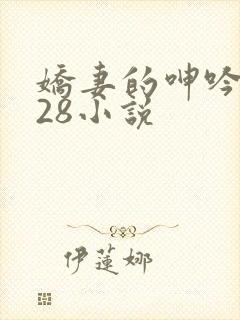 嬌妻的呻吟
28小説
伊蓮娜